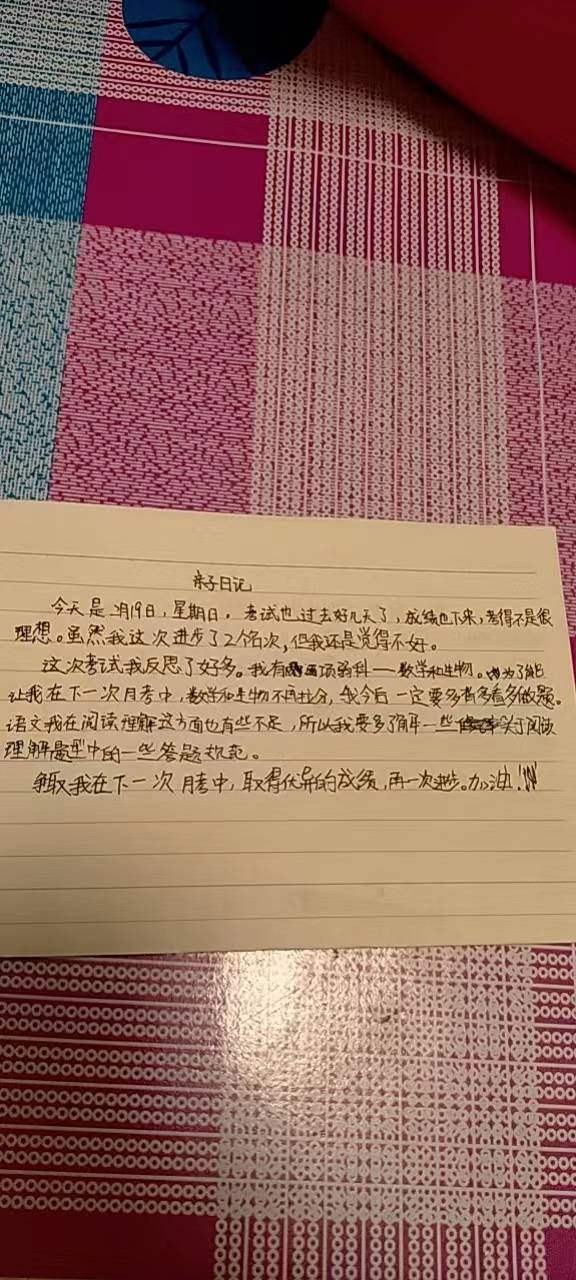 亲子日记
今天是 月19日，星期日。考试也过去好几天了，成绩也下来，考得不是很
理想。虽然我这次进步了2个名次，但我还是觉得不好。
这次考试我反思了好多。我有 项弱科——数学和生物。为了能
让我在下一次月考中，数学和生物不再拉分，我今后一定要多看多做题。
语文我在阅读理解这方面也有些不足，所以我要多了解一些关于阅读
理解题型中的一些答题规范。
争取我在下一次月考中，取得优异的成绩，再一次进步。加油！!!!